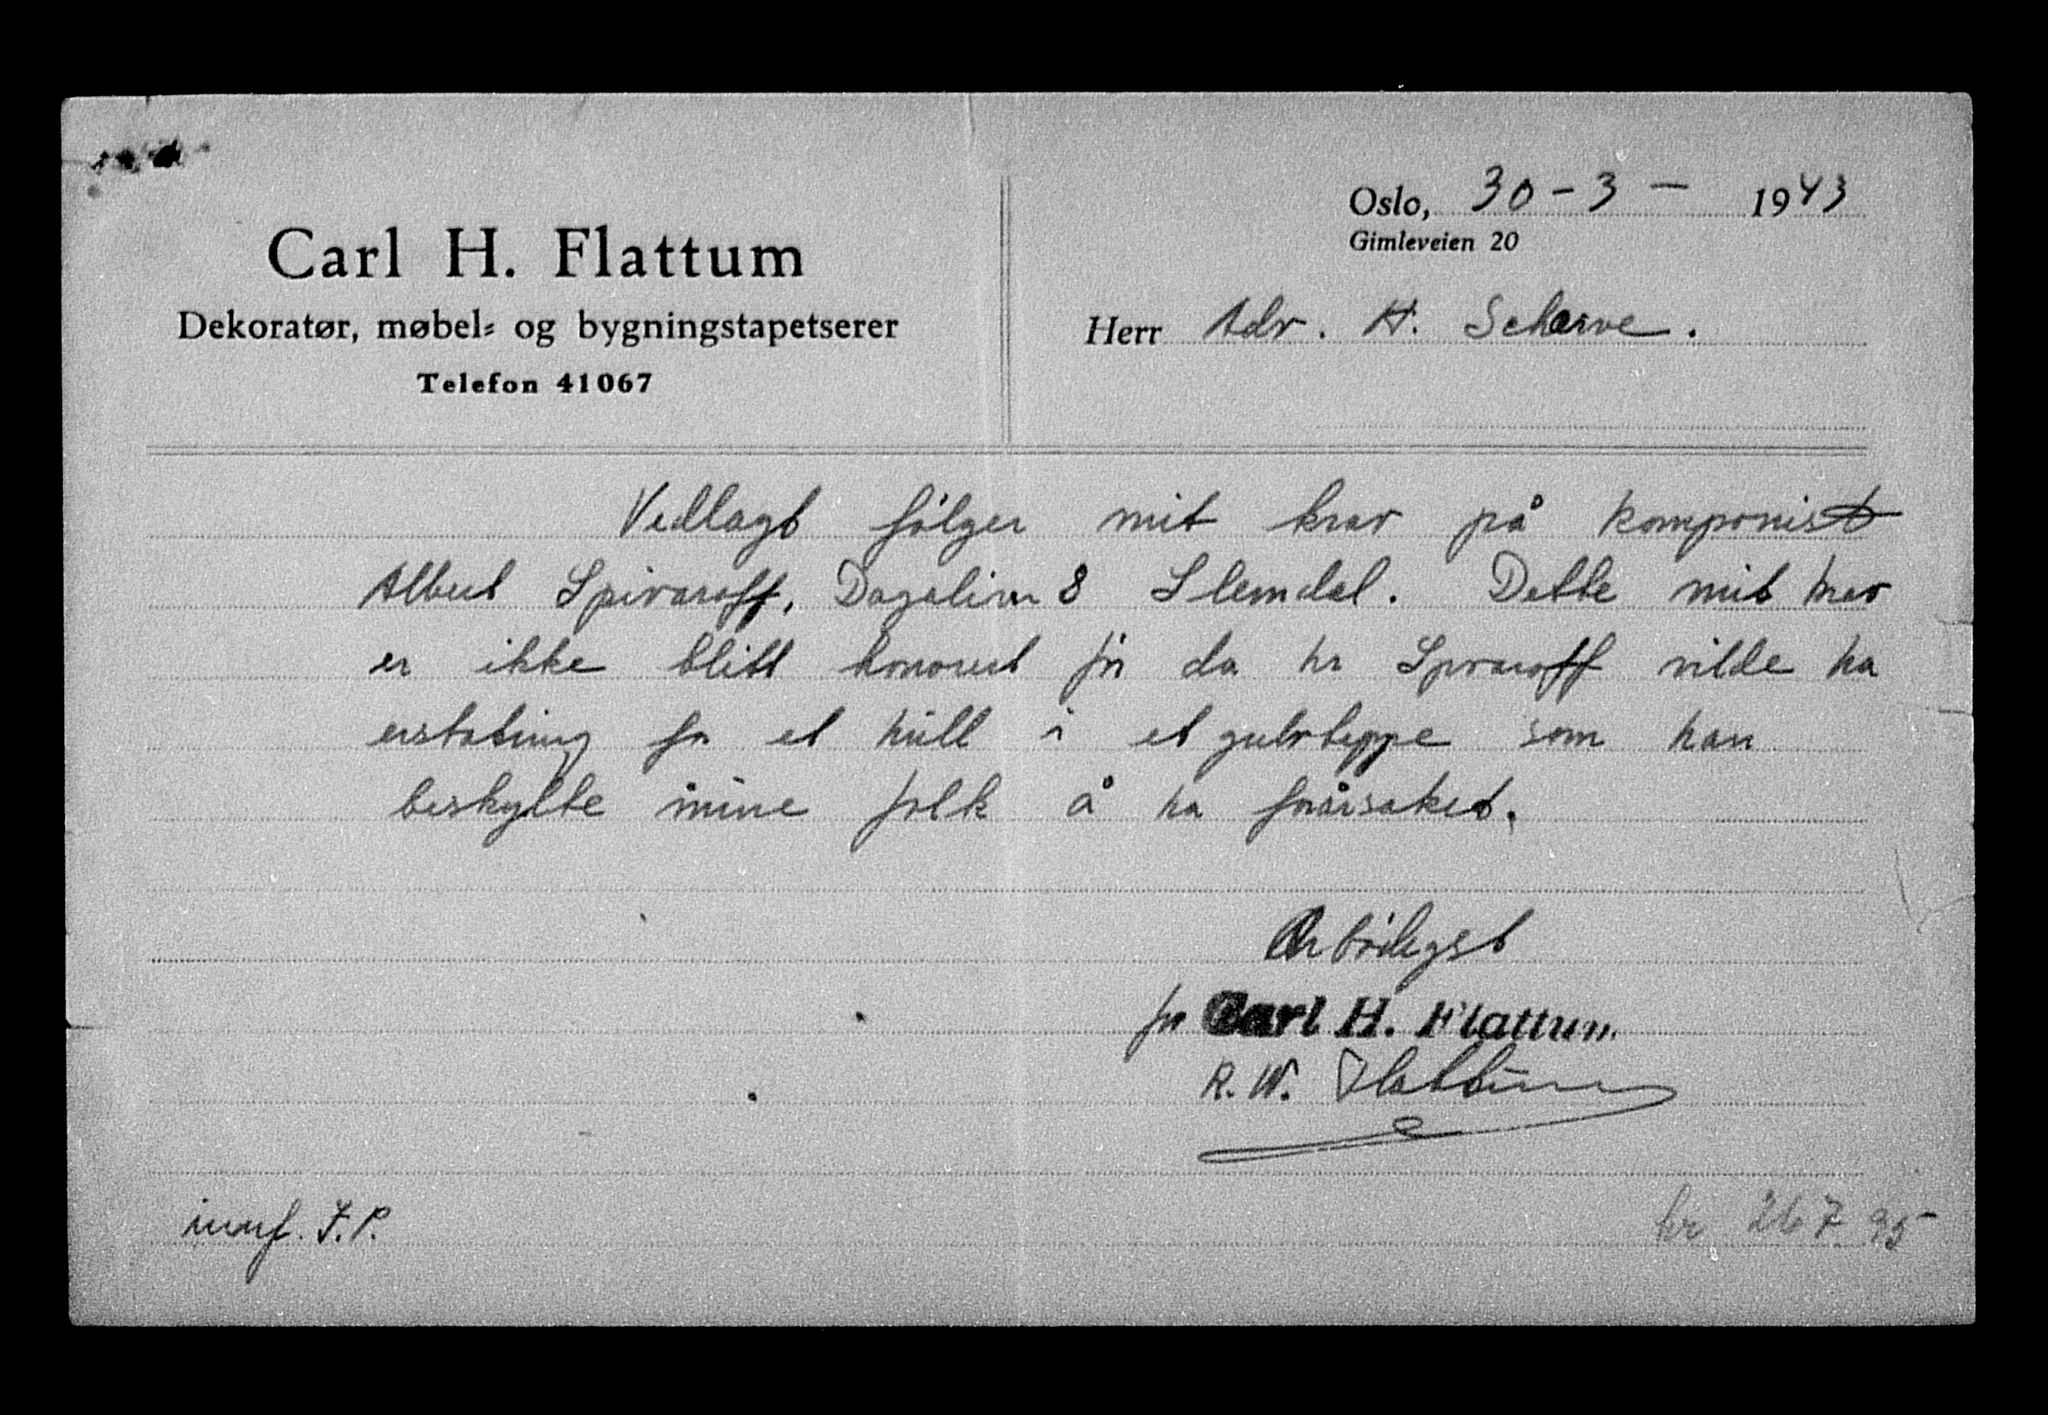 Carl H. Flattum
Dekoratør, møbel= og bygningstapetserer
Telefon 41067
Oslo, 30-3- 1943
Gimleveien 20
Herr Adv. H. Scheive.
Vedlagt følger mit krav på komponist
Albert Spivaroff, Dagaliv 8 Slemdal. Dette mit krav
er ikke blitt honorert før da hr Spivaroff vilde ha
erstatning for et hull i et gulvteppe som han
beskylte mine folk å ha forårsaket.
Ærbödigst
for Carl H. Flattum
R. W. Flattum
kr 267 95